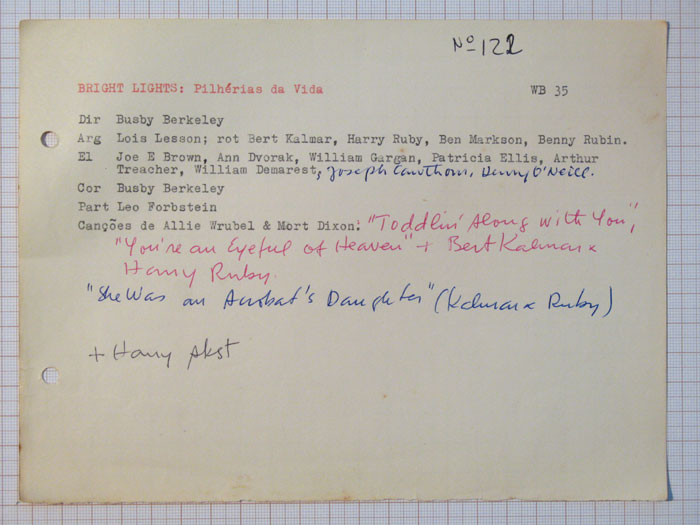 Nº 122
BRIGHT LIGHTS: Pilhérias da Vida WB 35
Dir Busby Berkeley
Arg Lois Lesson; rot Bert Kalmar, Harry Ruby, Ben Markson, Benny Rubin.
El Joe E Brown, Ann Dvorak, William Gargan, Patricia Ellis, Arthur
Treacher, William Demarest, Joseph Cawthorn, Henry O'Neill.
Cor Busby Berkeley
Part Leo Forbstein
Canções de Allie Wrubel & Mort Dixon: "Toddlin' Along with You",
"You're an Eyeful of Heaven" + Bert Kalmar x
Harry Ruby.
"She Was an Acrobat's Daughter" (Kalmar x Ruby)
+ Harry Akst